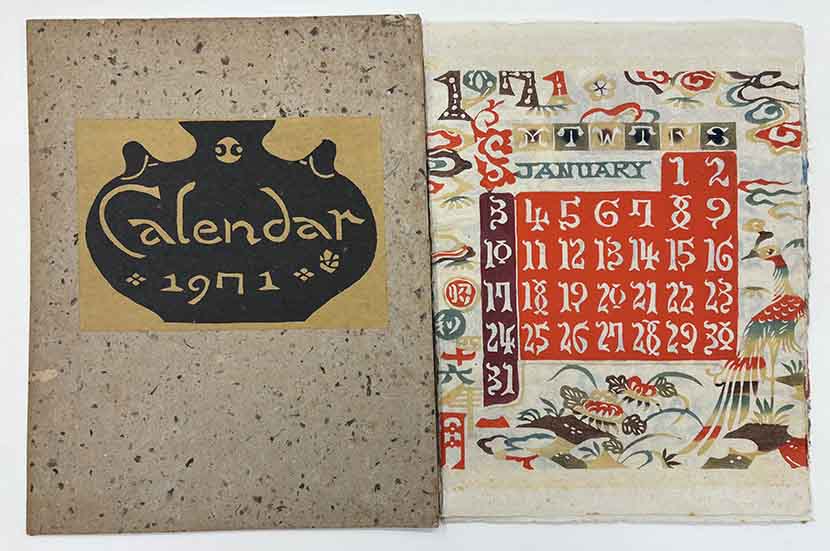 Calendar
1971
1971
S M T W T F S
JANUARY
1 2
3 4 5 6 7 8 9
10 11 12 13 14 15 16
17 18 19 20 21 22 23
24 25 26 27 28 29 30
31
昭
和
四
十
六
年
一
月